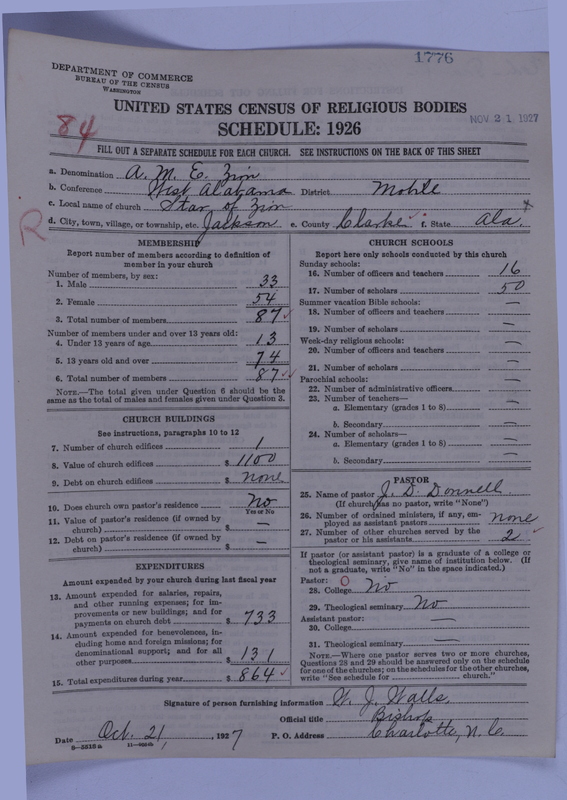 1776
DEPARTMENT OF COMMERCE
BUREAU OF THE CENSUS
WASHINGTON
UNITED STATES CENSUS OF RELIGIOUS BODIES
SCHEDULE: 1926
NOV 21 1927
84
FILL OUT A SEPARATE SCHEDULE FOR EACH CHURCH. SEE INSTRUCTIONS ON THE BACK OF THIS SHEET
a. Denomination A. M. E. Zion
b. Conference West Alabama District Mobile
c. Local name of church Star of Zion
d. City, town, village, or township, etc. Jackson e. County Clarke f. State Ala. x
R
MEMBERSHIP
Report number of members according to definition of member in your church
Number of members, by sex:
1. Male 33
2. Female 54
3. Total number of members 87
Number of members under and over 13 years old:
4. Under 13 years of age 13
5. 13 years old and over 74
6. Total number of members 87
NOTE.—The total given under Question 6 should be
same as the total of males and females given under Question 3.
CHURCH BUILDINGS
See instructions, paragraphs 10 to 12
7. Number of church edifices 1
8. Value of church edifices $ 1100
9. Debt on church edifices $ None
10. Does church own pastor's residence No
Yes or No
11. Value of pastor's residence (if owned by
church) $ —
12. Debt on pastor's residence (if owned by
church) $ —
EXPENDITURES
Amount expended by your church during last fiscal year
13. Amount expended for salaries, repairs,
and other running expenses; for im-
provements or new buildings; and for
payments on church debt $ 733
14. Amount expended for benevolences, in-
cluding home and foreign missions; for
denominational support; and for all
other purposes $ 131
15. Total expenditures during year $ 864
CHURCH SCHOOLS
Report here only schools conducted by this church
Sunday schools:
16. Number of officers and teachers 16
17. Number of scholars 50
Summer vacation Bible schools:
18. Number of officers and teachers —
19. Number of scholars —
Week-day religious schools:
20. Number of officers and teachers —
21. Number of scholars —
Parochial schools:
22. Number of administrative officers —
23. Number of teachers—
a. Elementary (grades 1 to 8) —
b. Secondary —
24. Number of scholars—
a. Elementary (grades 1 to 8) —
b. Secondary —
PASTOR
25. Name of pastor J. D. Donnell
(If church has no pastor, write "None")
26. Number of ordained ministers, if any, em-
ployed as assistant pastors none
27. Number of other churches served by the
pastor or his assistants 2
If pastor (or assistant pastor) is a graduate of a college or
theological seminary, give name of institution below. (If
not a graduate, write "No" in the space indicated.)
Pastor: O
28. College No
29. Theological seminary No
Assistant pastor:
30. College —
31. Theological seminary —
NOTE.—Where one pastor serves two or more churches,
Questions 28 and 29 should be answered only on the schedule
for one of the churches; on the schedules for the other churches,
write "See schedule for church."
Signature of person furnishing information W. J. Walls
Official title Bishop
Date Oct. 21, 1927 P. O. Address Charlotte, N. C.